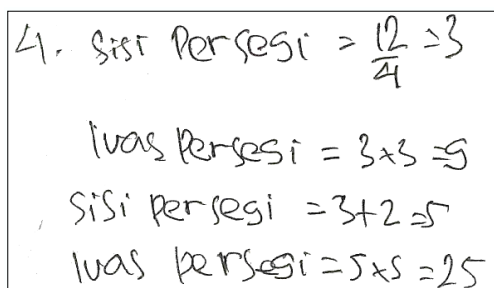 4. Sisi Persegi = 12/4 = 3
luas Persegi = 3×3 = 9
Sisi persegi = 3+2 = 5
luas persegi = 5×5 = 25